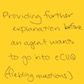 Providing further
explanation before
an agent wants
to go into ECWQ
(fielding questions)